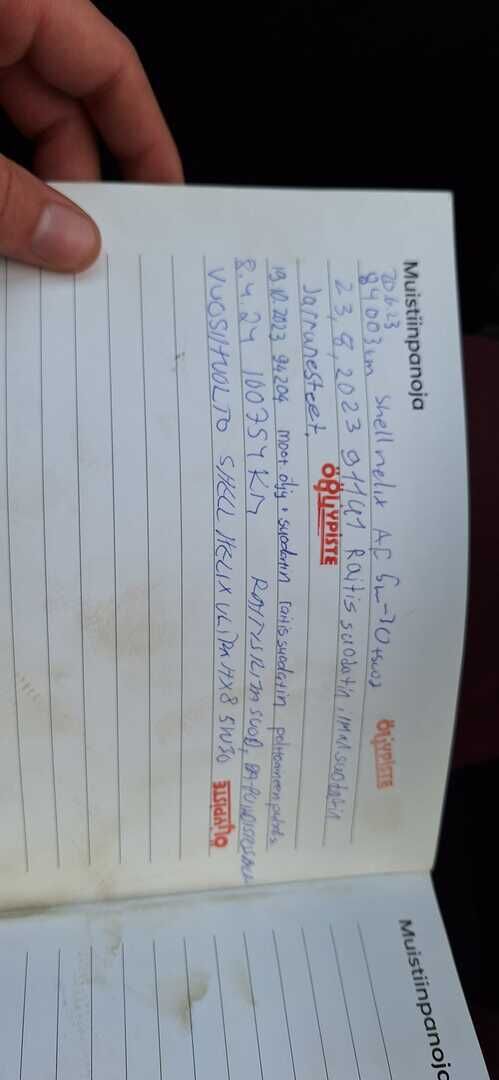 Muistiinpanoja
20.6.23
84003km Shell helix AF 5w-30 + suod
ÖLJYPISTE
23,8,2023 91141 Raitis suodatin, ilmalsuodatin
Jarrunesteet,
ÖLJYPISTE
19.10.2023 94204 moot.öljy + suodatin raitissuodatin polttoaineen puhdis
8.4.24 100754 KM RAITISILMASUOD,
VUOSIHUOLTO SHELL HELIX ULTRA HX8 5W30
ÖLJYPISTE
Muistiinpanoja